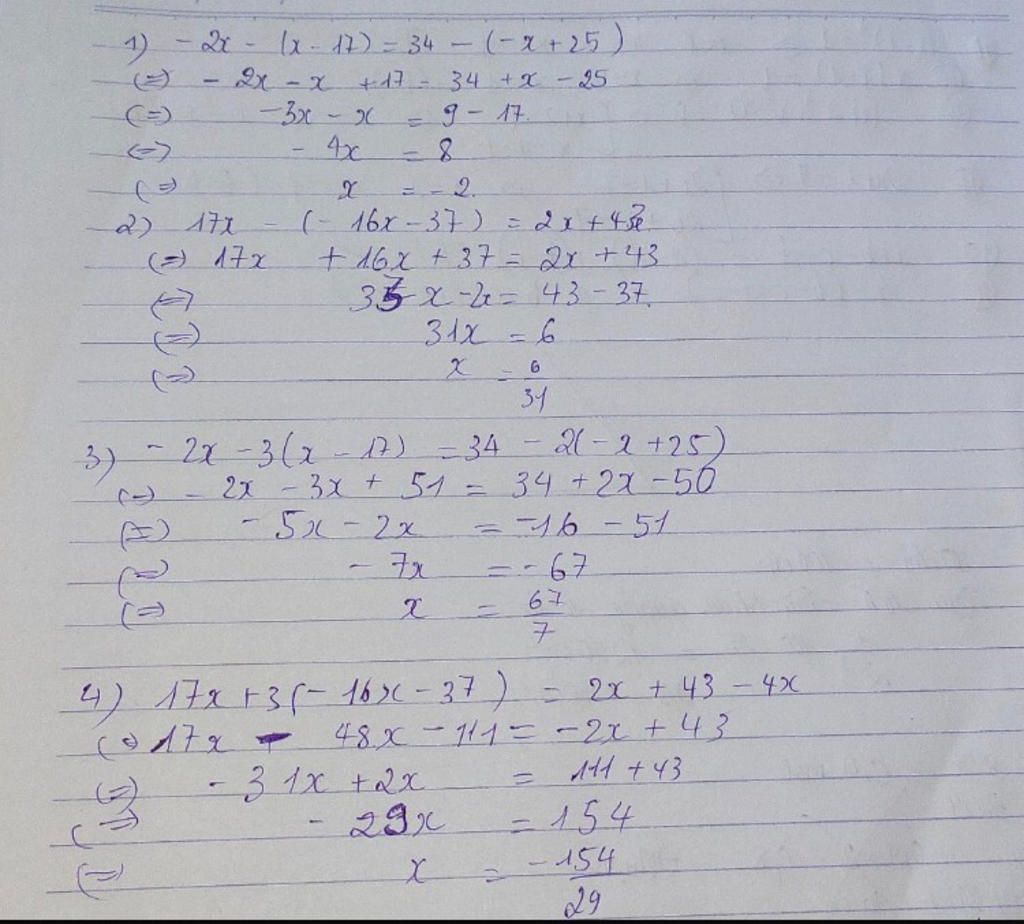 1) -2x - (x - 17) = 34 - (-x + 25)
(=) - 2x - x + 17 = 34 + x - 25
(=) -3x - x = 9 - 17.
<=> - 4x = 8
(=) x = -2.
2) 17x - (- 16x - 37) = 2x + 43
(=) 17x + 16x + 37 = 2x + 43
<=> 33x - 2x = 43 - 37.
(=) 31x = 6
(=) x = 6/31
3) - 2x - 3(x - 17) = 34 - 2(-x + 25)
(=) - 2x - 3x + 51 = 34 + 2x - 50
(=) - 5x - 2x = -16 - 51
(=) - 7x = - 67
(=) x = 67/7
4) 17x + 3(- 16x - 37) = 2x + 43 - 4x
(=) 17x - 48x - 111 = -2x + 43
(=) - 31x + 2x = 111 + 43
(=) - 29x = 154
(=) x = -154/29